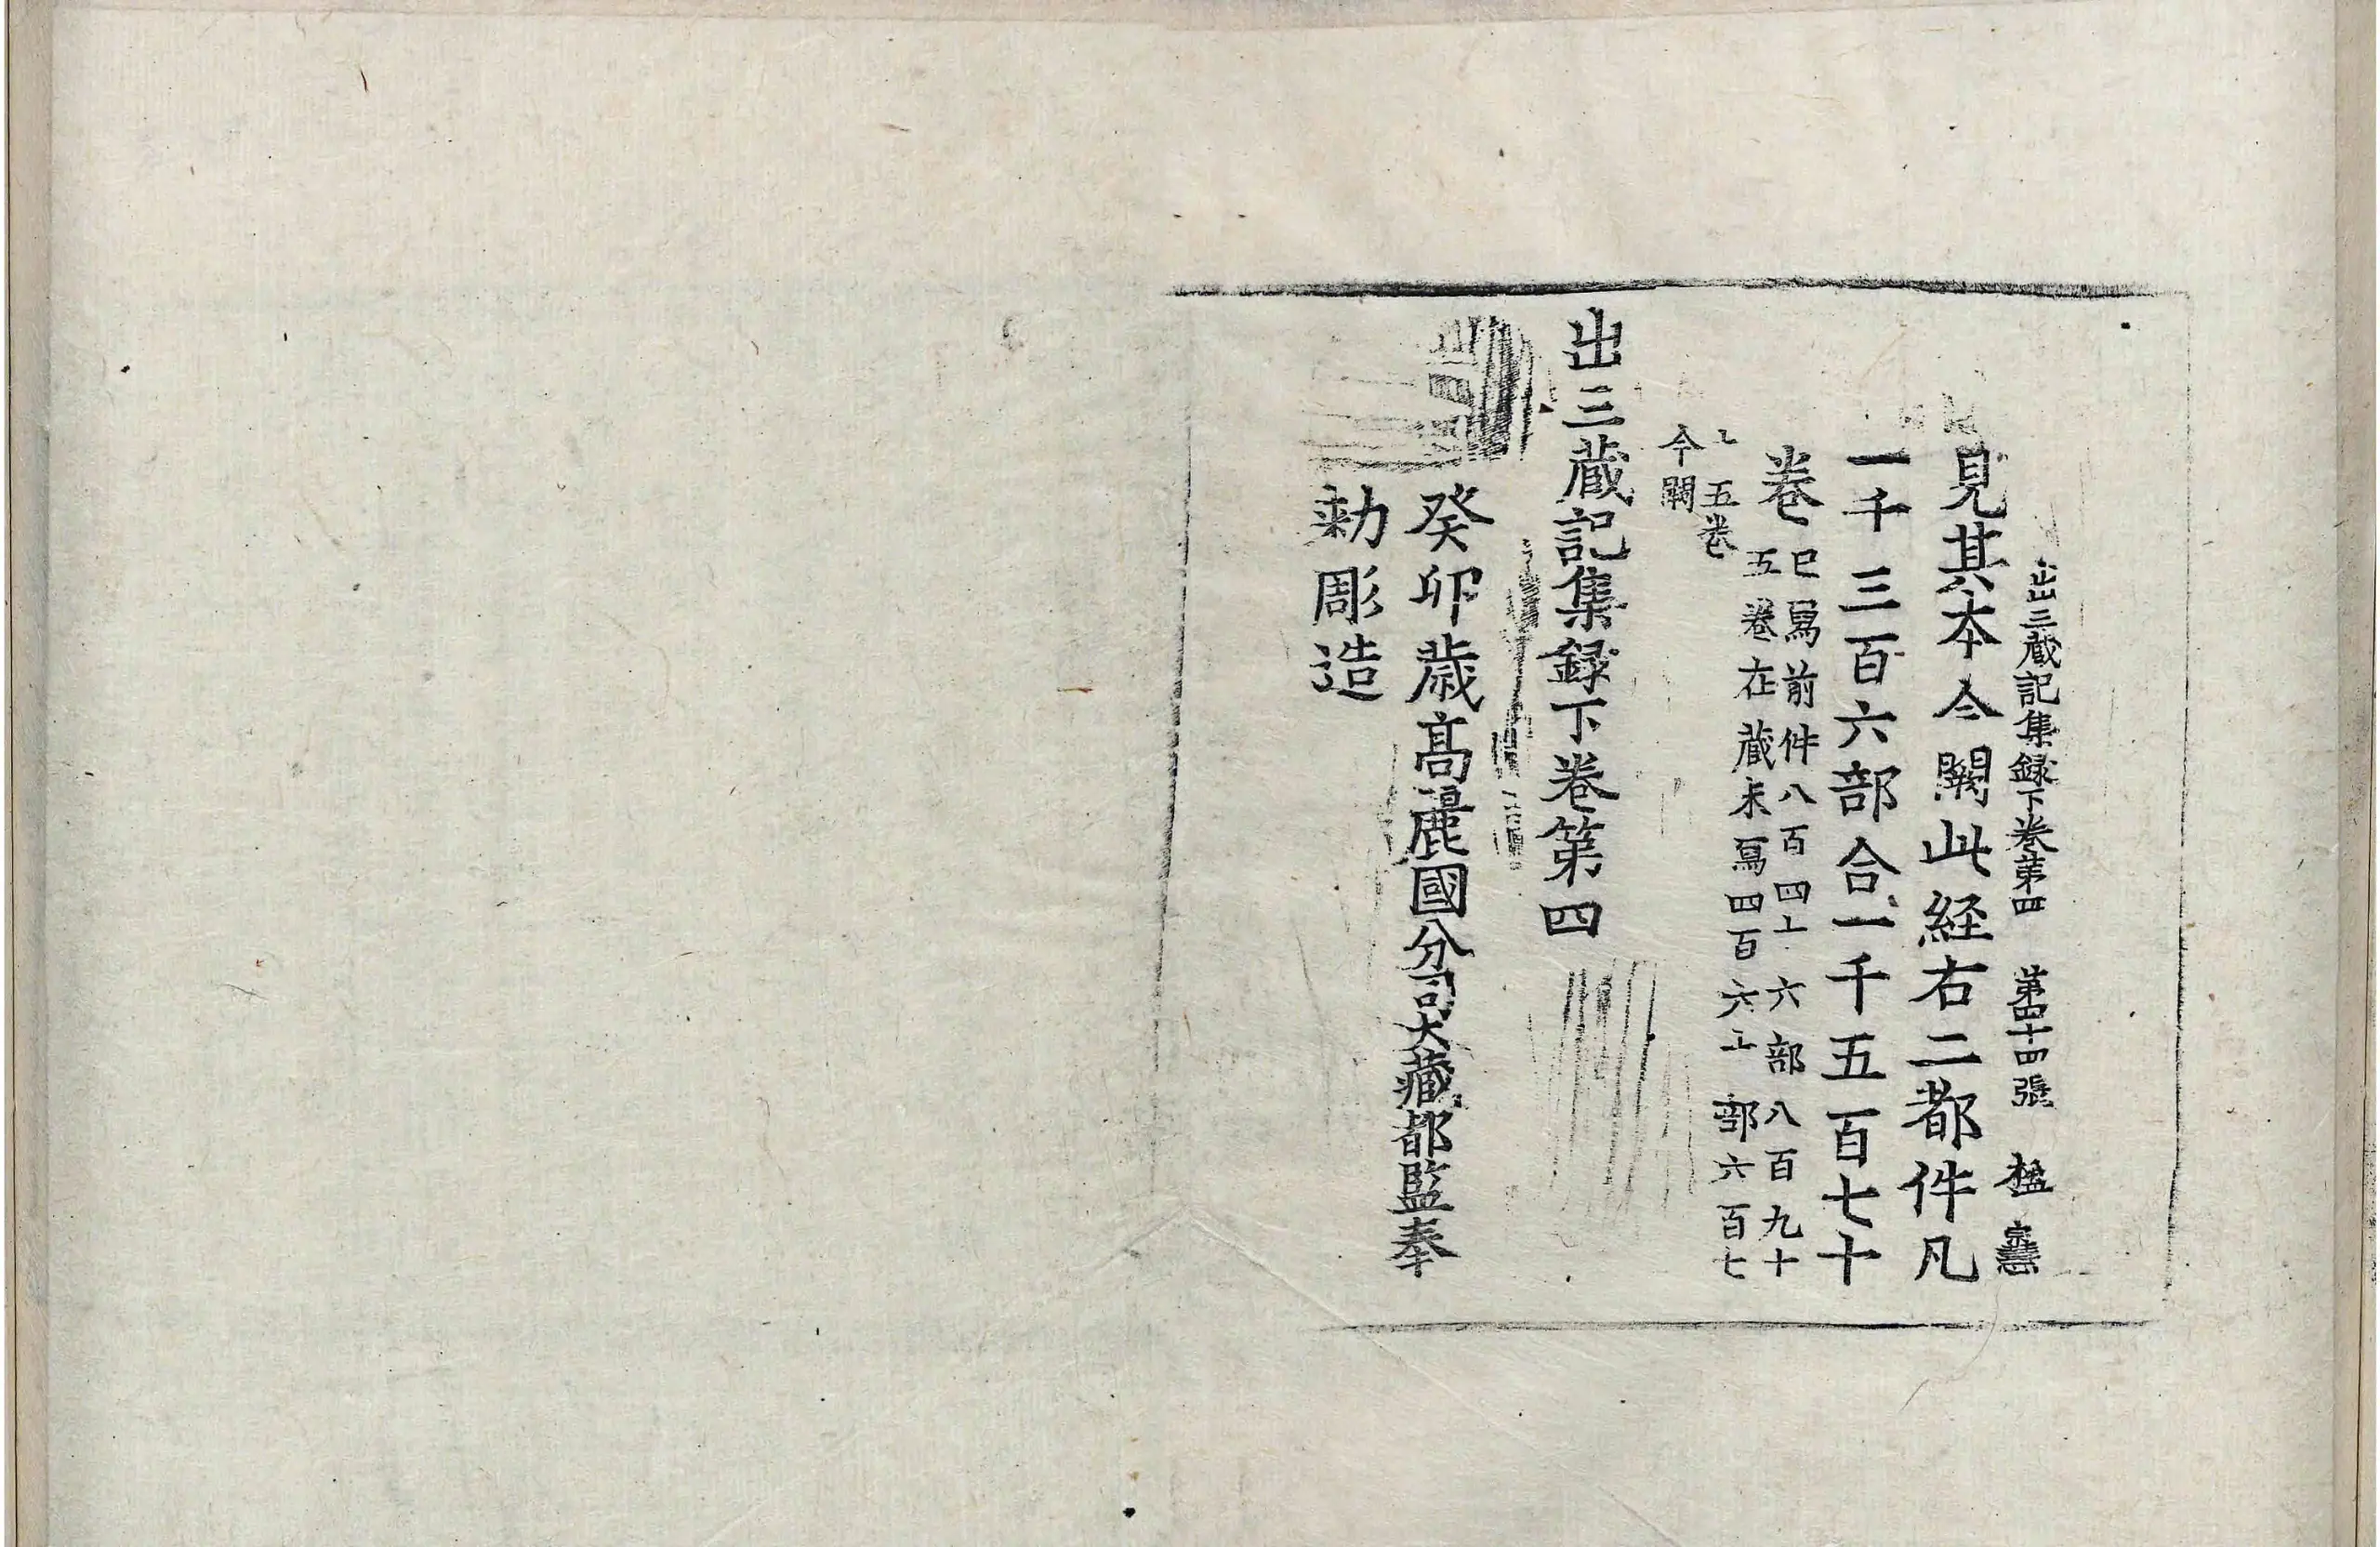 出三蔵記集録下卷第四 第四十四張 楹
見其本今闕此經右二都件凡
一千三百六部合一千五百七十
卷
已寫前件八百四十六部八百九十
五卷在蔵未寫四百六十部六百七
五卷
今闕
出三蔵記集録下卷第四
癸卯歳高麗國分司大藏都監奉
勑彫造